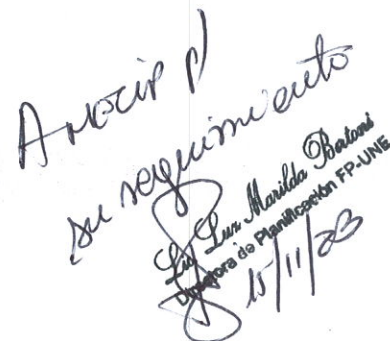 Anocir p/
su seguimiento
Lic. Luz Marilda Bertoni
Directora de Planificación FP-UNE
15/11/23